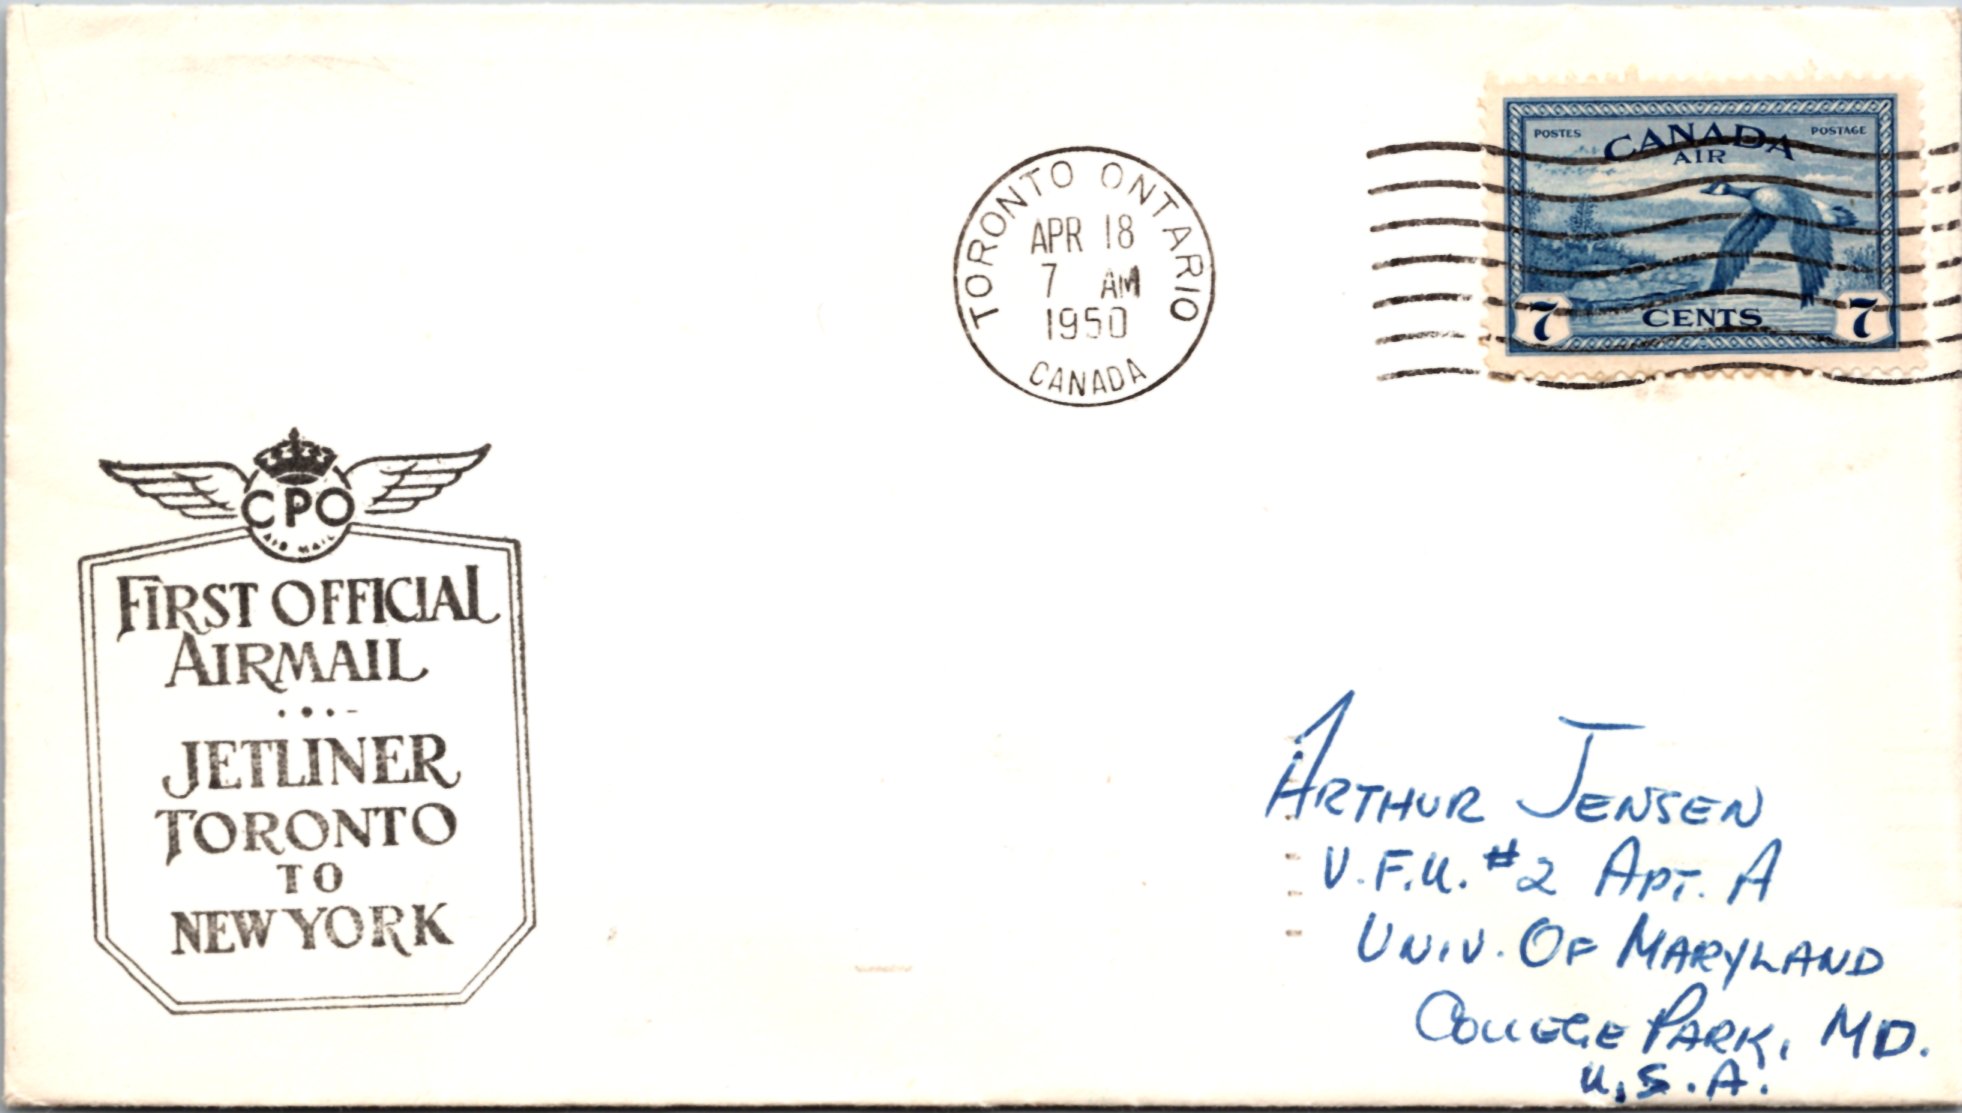 TORONTO ONTARIO
APR 18
7 AM
1950
CANADA
POSTES CANADA POSTAGE
AIR
7 CENTS 7
CPO
AIR MAIL
FIRST OFFICIAL
AIRMAIL
JETLINER
TORONTO
TO
NEW YORK
ARTHUR JENSEN
V.F.U. #2 APT. A
UNIV. OF MARYLAND
COLLEGE PARK, MD.
U.S.A.